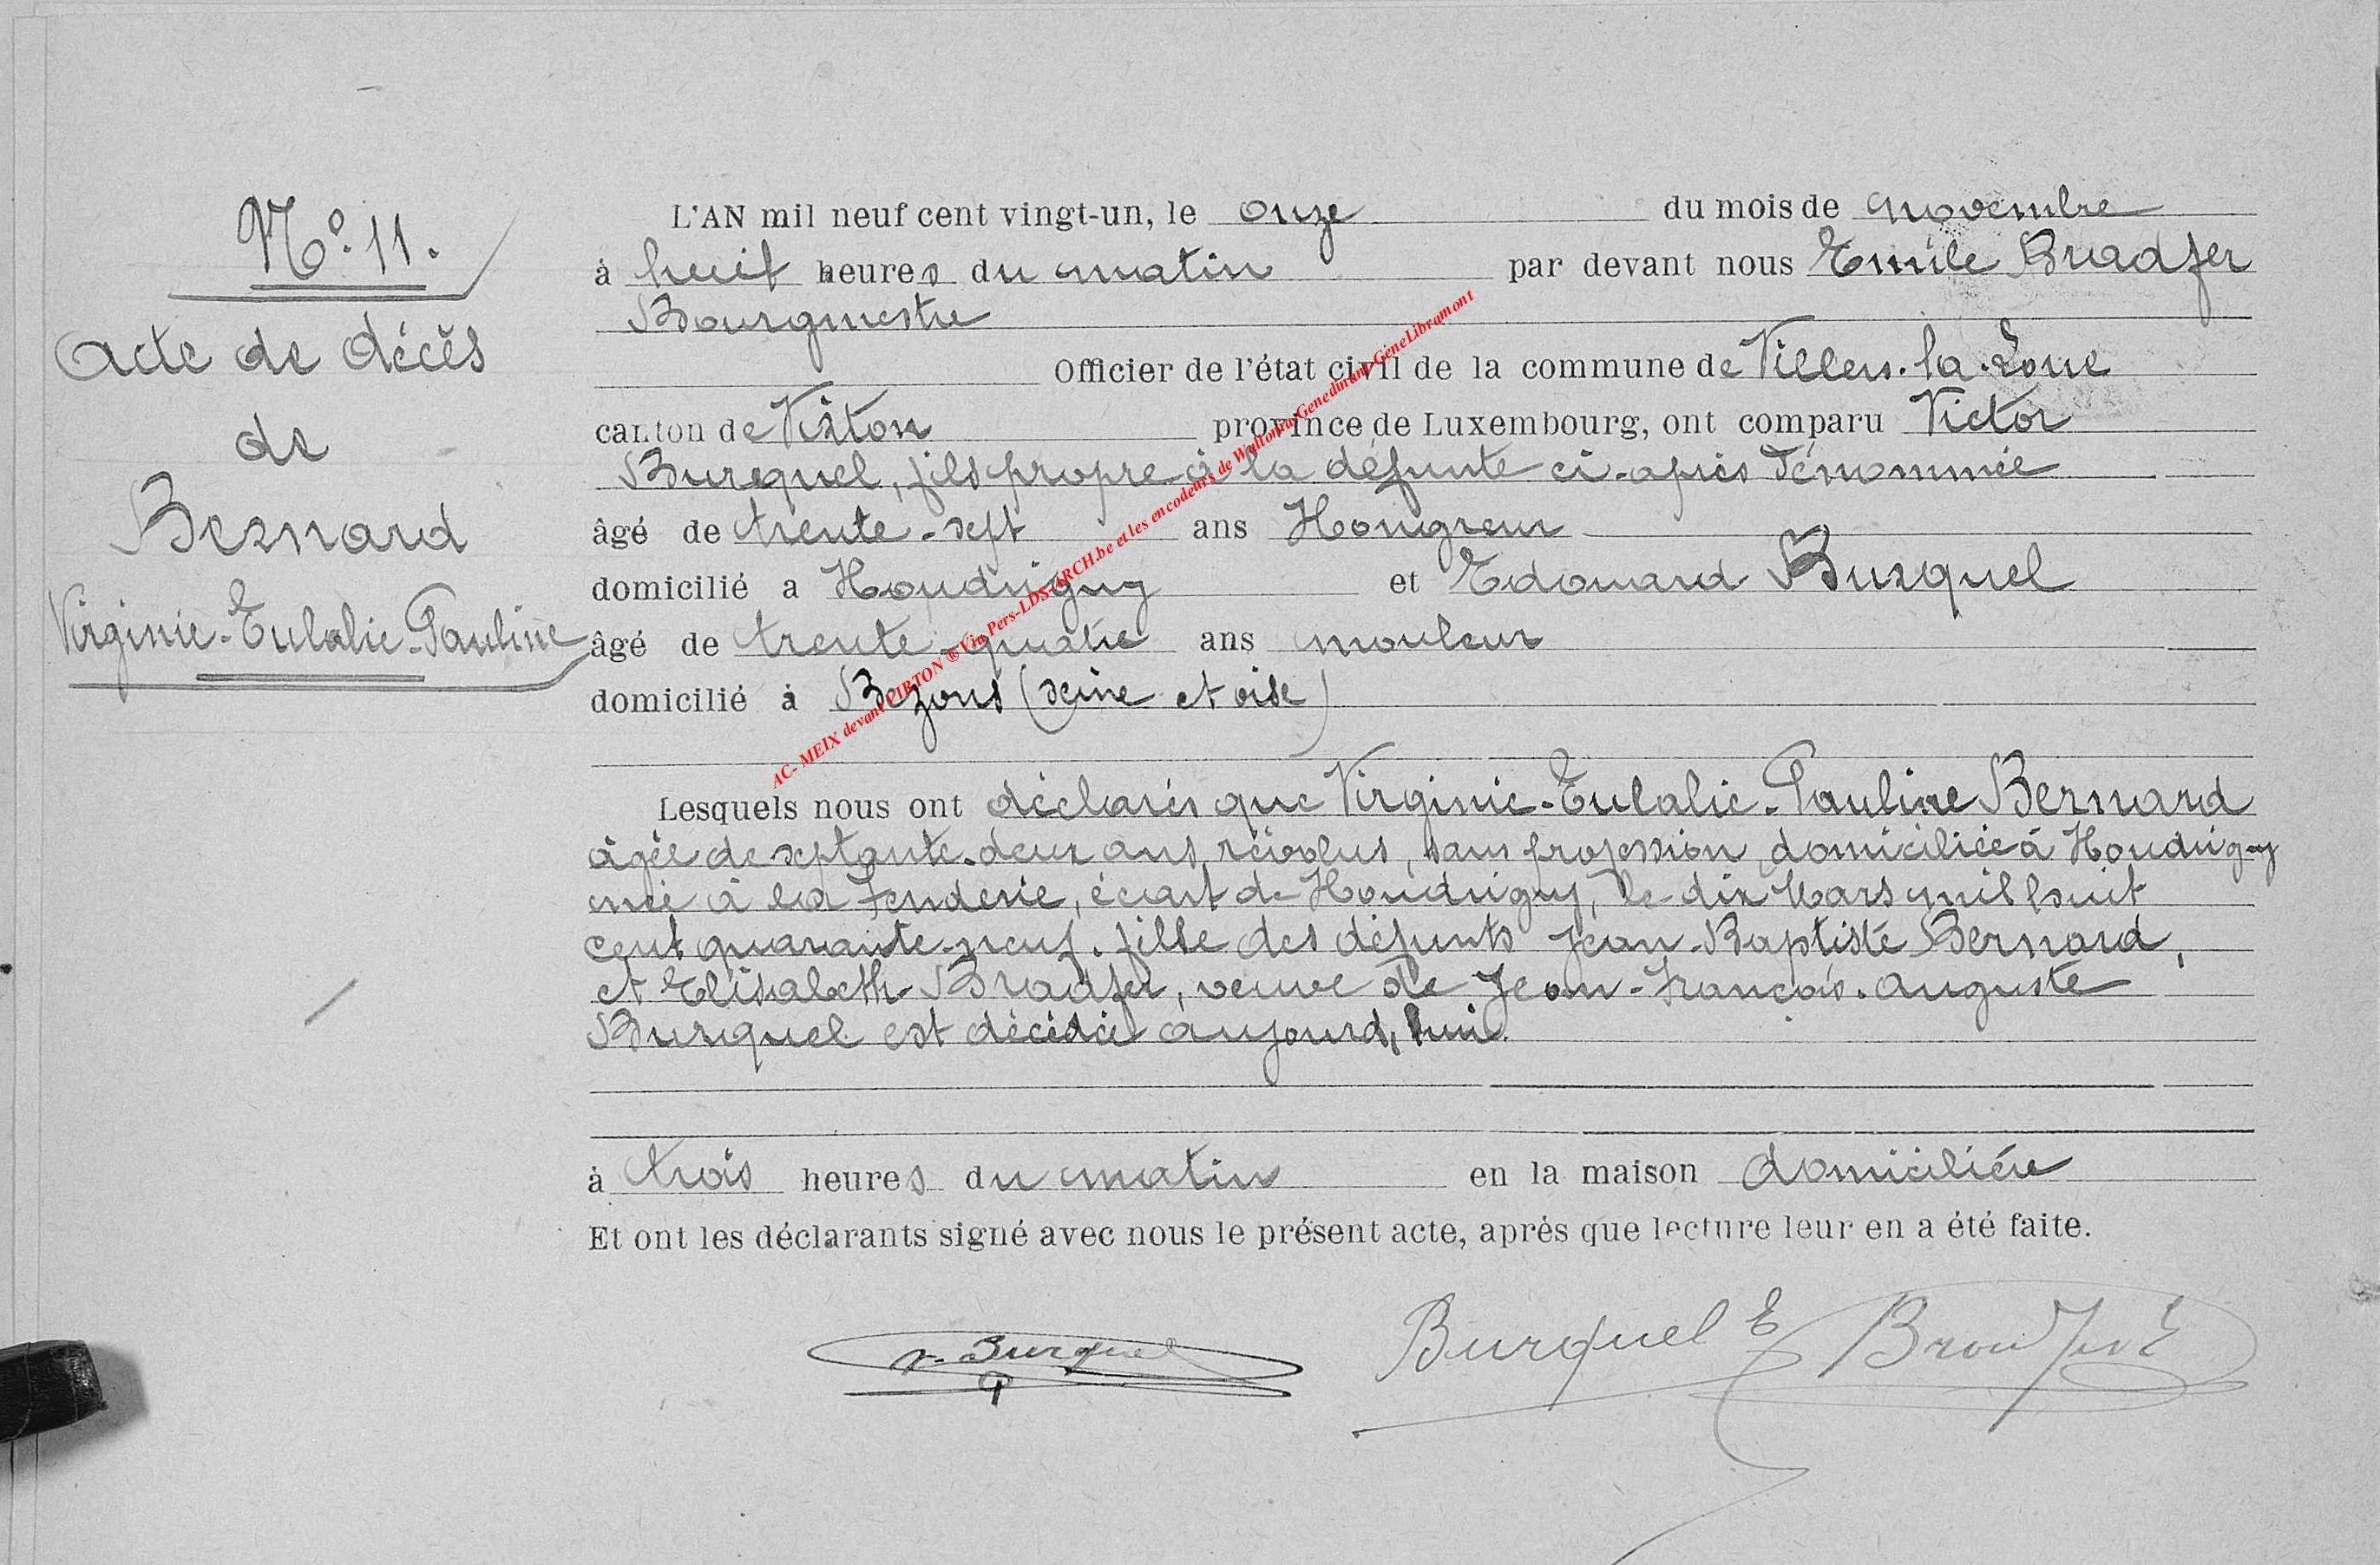 N° 11.
Acte de décès
de
Bernard
Virginie-Eulalie-Pauline
L'AN mil neuf cent vingt-un, le onze du mois de novembre
à huit heures du matin par devant nous Emile Bradfer
Bourgmestre
Officier de l'état civil de la commune de Villers-la-Loue
canton de Virton province de Luxembourg, ont comparu Victor
Burquel, fils propre à la défunte ci-après dénommée
âgé de trente-sept ans Hongreur
domicilié a Houdrigny et Edouard Burquel
âgé de trente-quatre ans mouleur
domicilié à Bezons (Seine et oise)
Lesquels nous ont déclarés que Virginie-Eulalie-Pauline Bernard
âgée de septante-deux ans révolus, sans profession, domiciliée à Houdrigny
née à la Fenderie, écart de Houdrigny, le dix Mars mil huit
cent quarante-neuf. fille des défunts Jean-Baptiste Bernard,
et Elisabeth Bradfer, veuve de Jean-François-Auguste
Burquel est décédée aujourd'hui
à trois heures du matin en la maison domiciliére
Et ont les déclarants signé avec nous le présent acte, après que lecture leur en a été faite.
V. Burquel
Burquel E
AC- MEIX devant VIRTON ® Via Pers-LDS-ARCH.be et les encodeurs de Wallonia-Genedinant-GeneLibramont